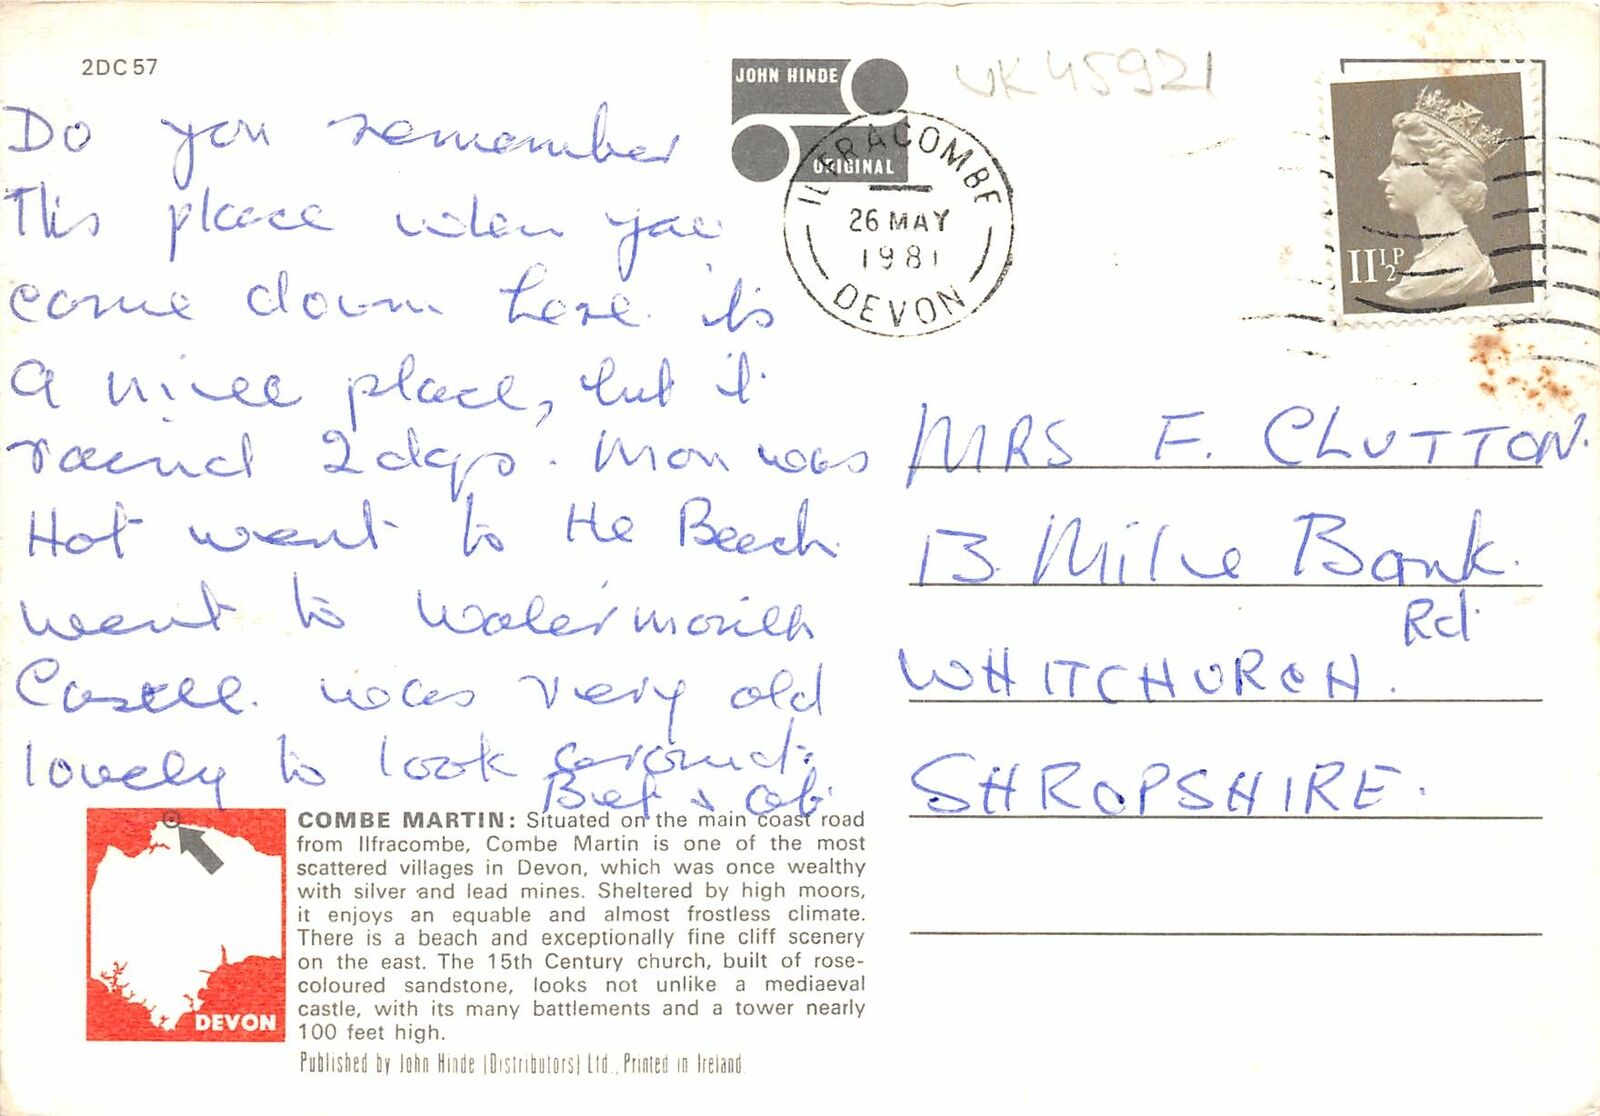 2DC57
JOHN HINDE
ORIGINAL
UK45921
ILFRACOMBE
26 MAY
1981
DEVON
11½P
Do you remember
This place when you
come down here. it's
a nice place, but it
raind 2 days. Mon was
Hot went to the Beach
went to Watermouth
Castle. was very old
lovely to look around.
MRS F. CLUTTON.
13 Mile Bank
Rd
WHITCHURCH.
SHROPSHIRE.
COMBE MARTIN: Situated on the main coast road
from Ilfracombe, Combe Martin is one of the most
scattered villages in Devon, which was once wealthy
with silver and lead mines. Sheltered by high moors,
it enjoys an equable and almost frostless climate.
There is a beach and exceptionally fine cliff scenery
on the east. The 15th Century church, built of rose-
coloured sandstone, looks not unlike a mediaeval
castle, with its many battlements and a tower nearly
100 feet high.
DEVON
Published by John Hinde (Distributors) Ltd., Printed in Ireland.